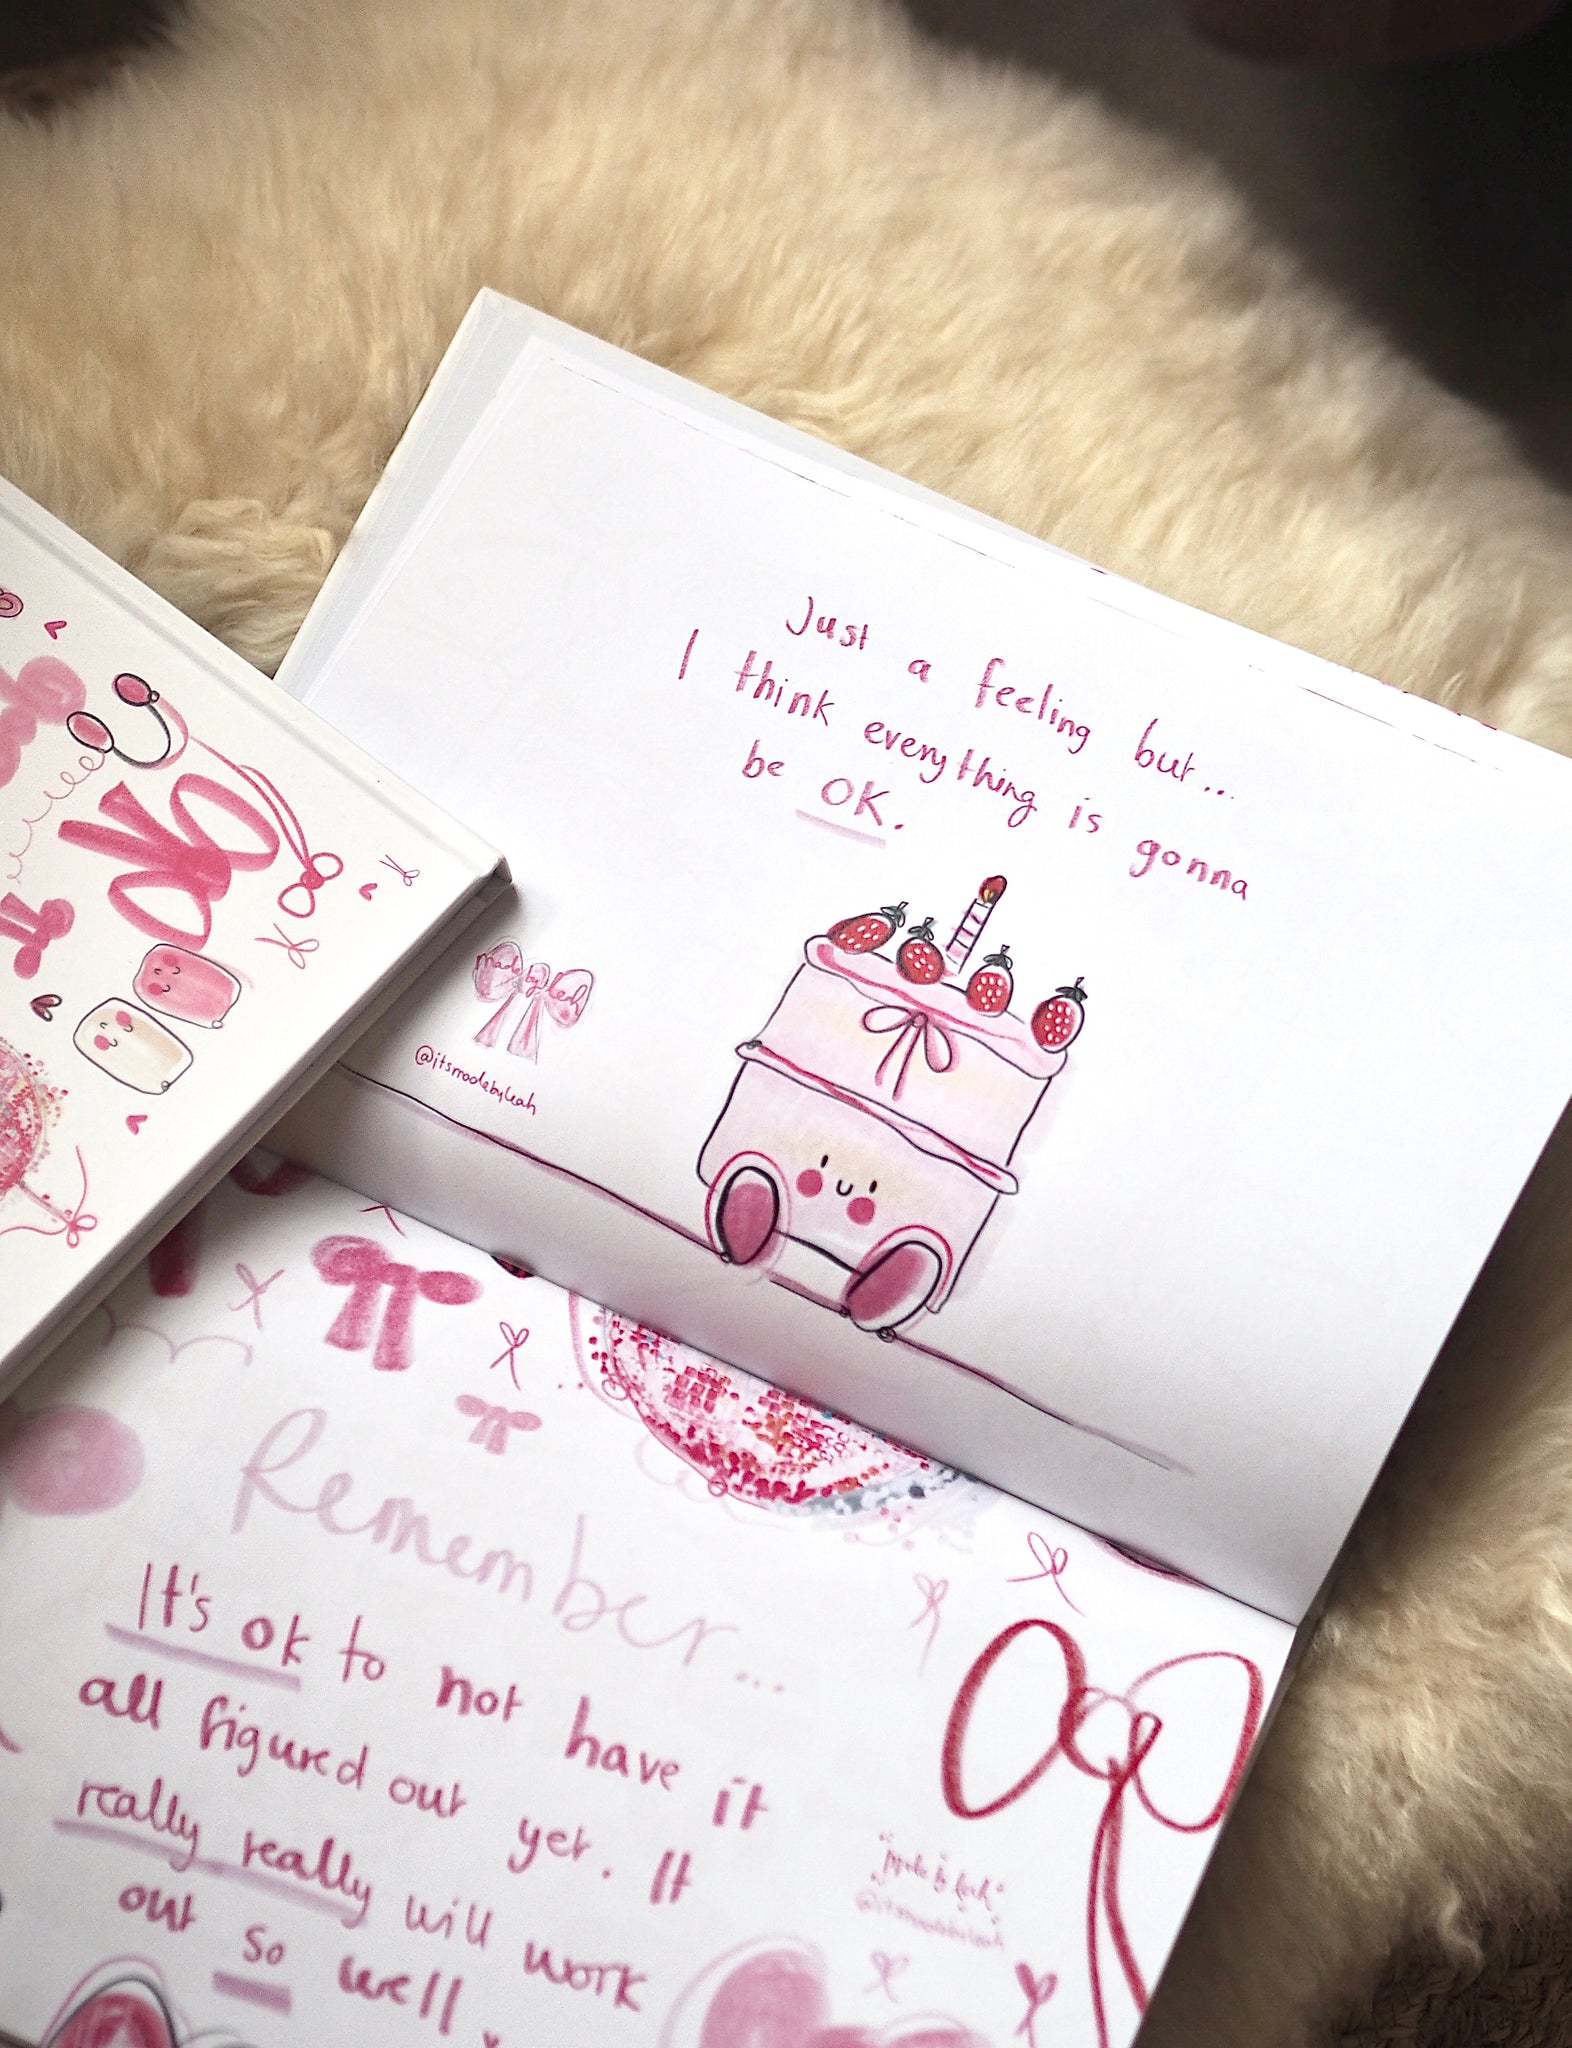 Just a feeling but...
I think everything is gonna
be OK.
made by leah
@itsmadebyleah
Remember...
It's ok to not have it
all figured out yet. It
really really will work
out so well.
made by leah
@itsmadebyleah